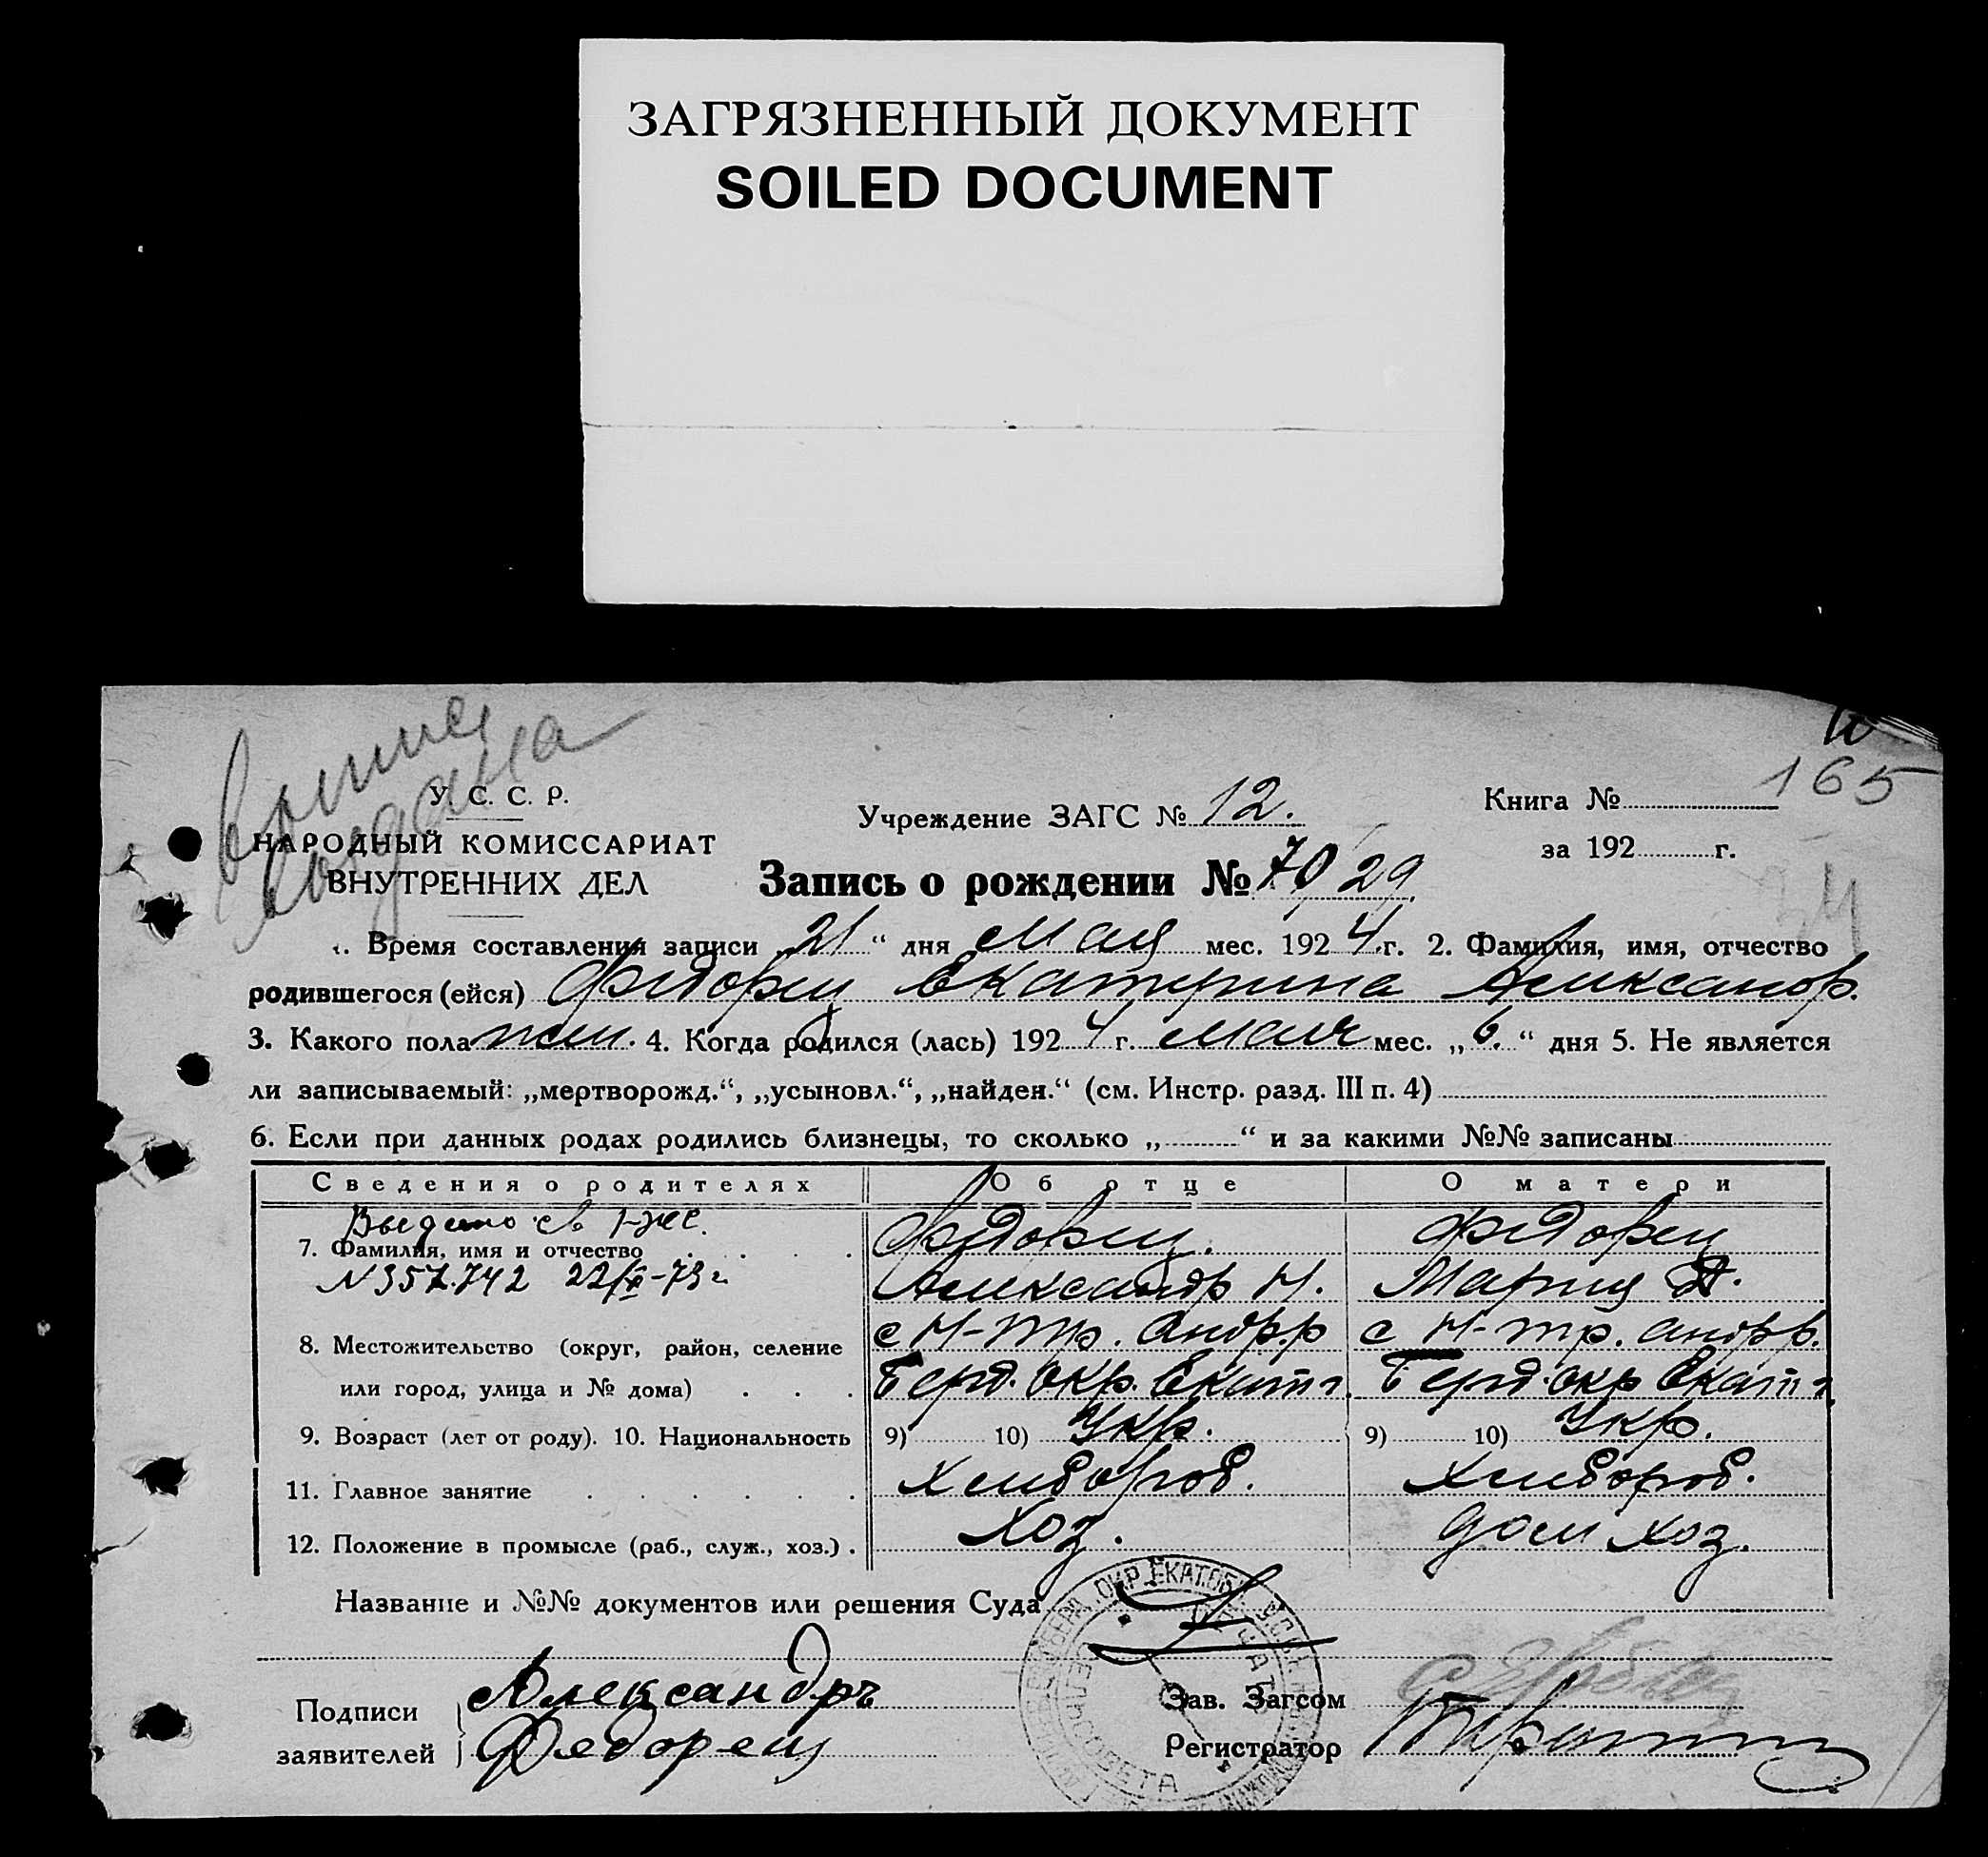 ЗАГРЯЗНЕННЫЙ ДОКУМЕНТ
SOILED DOCUMENT
165
У. С. С. Р.
НАРОДНЫЙ КОМИССАРИАТ
ВНУТРЕННИХ ДЕЛ
Учреждение ЗАГС № 12.
Книга №
за 192 г.
Запись о рождении № 70 29
1. Время составления записи „21“ дня Мая мес. 1924 г. 2. Фамилия, имя, отчество
родившегося (ейся) Федорец Екатерина Александр.
3. Какого пола жен. 4. Когда родился (лась) 1924 г. Мая мес. „6.“ дня 5. Не является
ли записываемый: „мертворожд.“, „усыновл.“, „найден.“ (см. Инстр. разд. III п. 4)
6. Если при данных родах родились близнецы, то сколько „ “ и за какими №№ записаны
Сведения о родителях Об отце О матери
Выдано св
7. Фамилия, имя и отчество Федорец. Федорец
N 357.742 22/XI-73 г. Александр Н. Мария
8. Местожительство (округ, район, селение с Н-тр. Андр.р с Н-тр. андр.р.
или город, улица и № дома) Берд. окр. Екат г. Берд. окр Екат г
9. Возраст (лет от роду). 10. Национальность 9) 10) Укр. 9) 10) Укр.
11. Главное занятие Хлебороб. Хлебороб.
12. Положение в промысле (раб., служ., хоз.) Хоз. дом хоз.
Название и №№ документов или решения Суда
Подписи
заявителей
Александръ
Федорец
Зав. Загсом
Регистратор